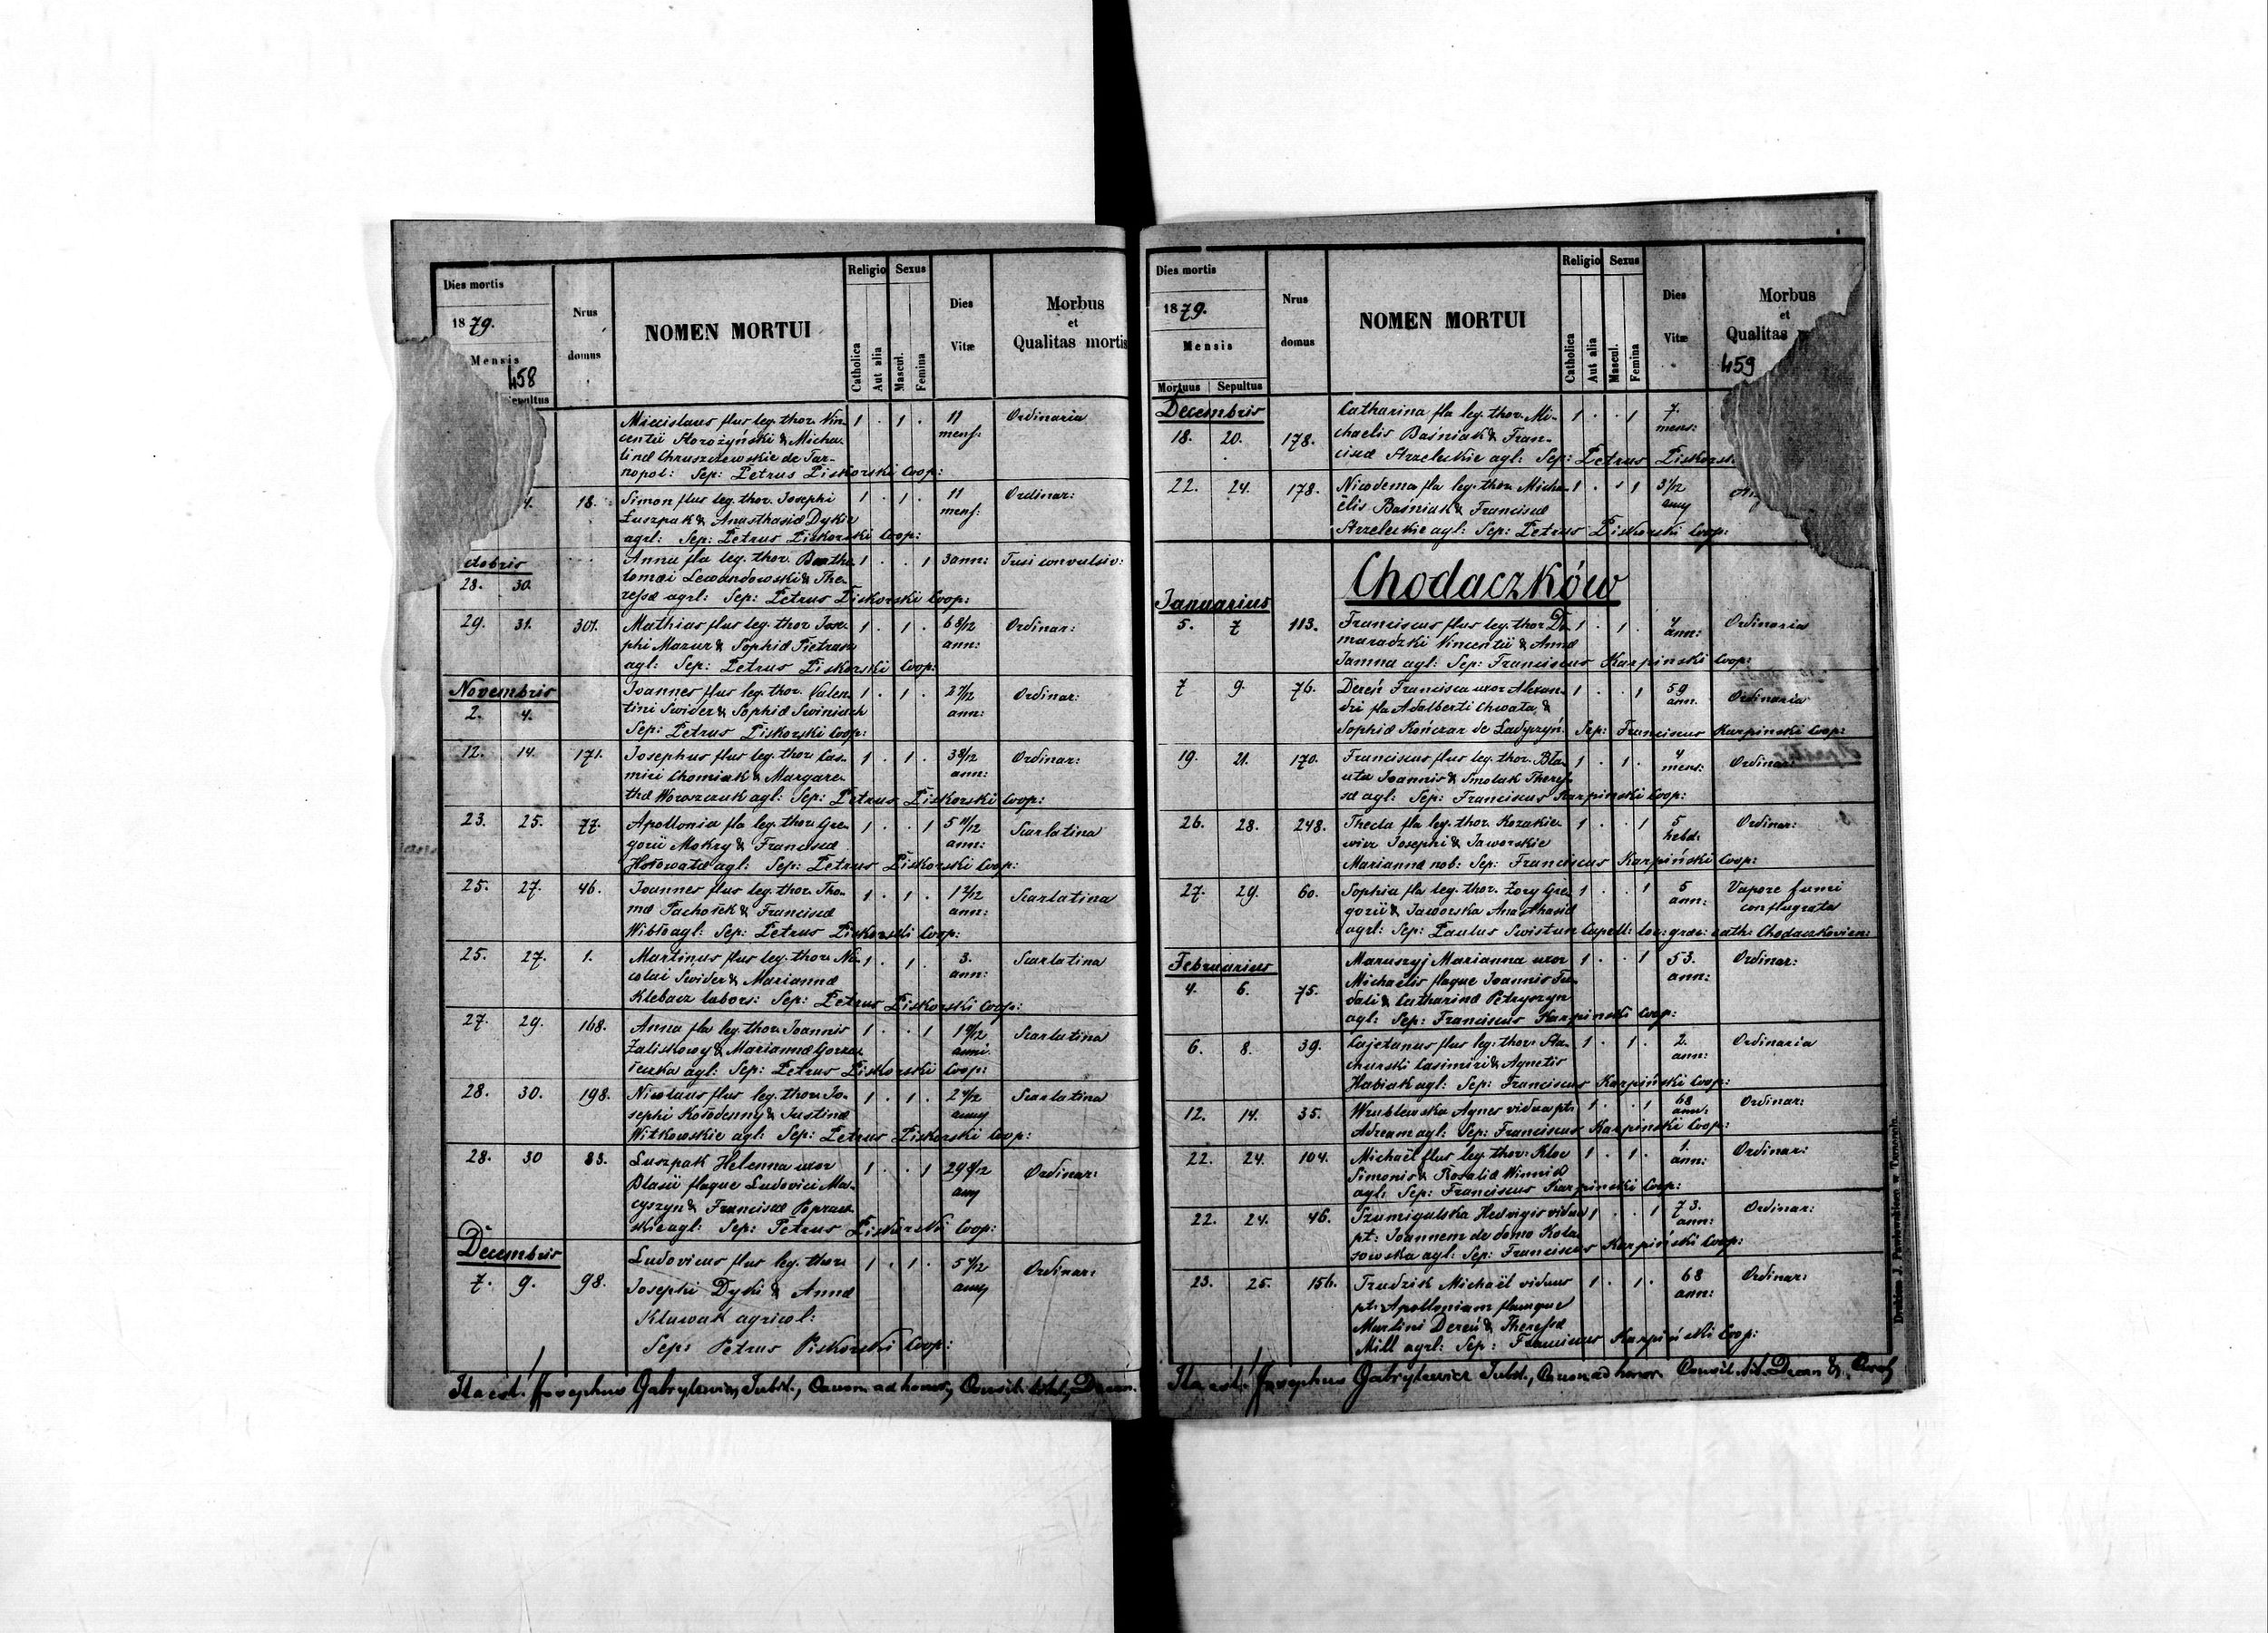 Dies mortis
1879.
Mensis
458
Sepultus
Nrus
domus
NOMEN MORTUI
Religio
Catholica
Aut alia
Sexus
Mascul.
Femina
Dies
Vitæ
Morbus
et
Qualitas mortis
Miecislaus flus leg. thor. Vin- 1 . 1 . 11 Ordinaria
centii Storożyński & Micha- mens:
linæ Chruszczewskie de Tar-
nopol: Sep: Petrus Piskorski Coop:
4. 18. Simon flus leg. thor. Josephi 1 . 1 . 11 Ordinar:
Łuszpak & Anasthasiæ Dykie mens:
agrl: Sep: Petrus Piskorski Coop:
ctobris
28. 30. Anna fla leg. thor. Bartho- 1 . . 1 3 ann: Tusi convulsiv:
lomæi Lewandowski & The-
resæ agrl: Sep: Petrus Piskorski Coop:
29. 31. 301. Mathias flus leg. thor. Jose- 1 . 1 . 6 8/12 Ordinar:
phi Mazur & Sophiæ Pietrus ann:
agl: Sep: Petrus Piskorski Coop:
Novembris
2. 4. Joannes flus leg. thor. Valen- 1 . 1 . ann: Ordinar:
tini Swider & Sophiæ Swiniuch
Sep: Petrus Piskorski Coop:
12. 14. 171. Josephus flus leg. thor. Cas- 1 . 1 . 3 8/12 Ordinar:
miri Chomiak & Margare- ann:
thæ Woroszczuk agl: Sep: Petrus Piskorski Coop:
23. 25. 77. Apollonia fla leg. thor. Gre- 1 . . 1 5 11/12 Scarlatina
gorii Mokry & Franciscæ ann:
Hołowatæ agl: Sep: Petrus Piskorski Coop:
25. 27. 46. Joannes flus leg. thor. Tho- 1 . 1 . 1 2/12 Scarlatina
mæ Pachołek & Franciscæ ann:
Wibło agl: Sep: Petrus Piskorski Coop:
25. 27. 1. Martinus flus leg. thor. Ni- 1 . 1 . 3. Scarlatina
colai Swider & Mariannæ ann:
Klebacz labors: Sep: Petrus Piskorski Coop:
27. 29. 168. Anna fla leg. thor. Joannis 1 . . 1 Scarlatina
Zaliskowy & Mariannæ anni
agl: Sep: Petrus Piskorski Coop:
28. 30. 198. Nicolaus flus leg. thor. Jo- 1 . 1 . Scarlatina
sephi Kołodenny & Justinæ
Witkowskie agl: Sep: Petrus Piskorski Coop:
28. 30 83. Luszpak Helenna uxor 1 . . 1 Ordinar:
Blasii flaque Ludovici Ma-
cyszyn & Franciscæ Popraw-
skie agl: Sep: Petrus Piskorski Coop:
Decembris
7. 9. 98. Ludovicus flus leg. thor. 1 . 1 . Ordinar:
Josephi Dyki & Annæ
Kluwak agricol:
Sep: Petrus Piskorski Coop:
Ita est. Josephus Gabrylewicz Subst., Canon ad honor, Consil. titul, Decan.
Dies mortis
1879.
Mensis
Mortuus Sepultus
Nrus
domus
NOMEN MORTUI
Religio
Catholica
Aut alia
Sexus
Mascul.
Femina
Dies
Vitæ
Morbus
et
Qualitas
459
Decembris
18. 20. 178. Catharina fla leg. thor. Mi- 1 . . 1 7.
chaelis Baśniak & Fran- mens:
ciscæ Strzeleckie agl: Sep: Petrus Piskorsk
22. 24. 178. Nicodema fla leg. thor. Micha- 1 . . 1 3 1/12
ëlis Baśniak & Franciscæ
Strzeleckie agl: Sep: Petrus Piskorski Coop:
Chodaczków
Januarius
5. 7 113. Franciscus flus leg. thor. Do- 1 . 1 . 4 Ordinaria
maradzki Vincentii & Annæ ann:
Jamna agl: Sep: Franciscus Karpinski Coop:
7 9. 76. Dereń Francisca uxor Alexan- 1 . . 1 59 Ordinaria
dri fla Adalberti Chwata & ann.
Sophiæ Kończar de Ładyczyn. Sep: Franciscus Karpinski Coop:
19. 21. 170. Franciscus flus leg. thor. Bła- 1 . 1 . 4 Ordinar:
uta Joannis & Smoluk Theres- mens:
sæ agl: Sep: Franciscus Karpinski Coop:
26. 28. 248. Thecla fla leg. thor. Kozakie- 1 . . 1 5 Ordinar:
wicz Josephi & Jaworskie hebd:
Mariannæ nob: Sep: Franciscus Karpiński Coop:
27. 29. 60. Sophia fla leg. thor. Zory Gre- 1 . . 1 5 Vapore fumi
gorii & Jaworska Anasthasiæ ann: conflagrata
agrl: Sep: Paulus Swistun Capell: loc: græc: cath: Chodaczkovien:
Februarius
4. 6. 75. Maruszyj Marianna uxor 1 . . 1 53. Ordinar:
Michaëlis flaque Joannis ann:
& Catharinæ Petryszyn
agl: Sep: Franciscus Karpinski Coop:
6. 8. 39. Cajetanus flus leg. thor. Sta- 1 . 1 . 2. Ordinaria
churski Casimiri & Agnetis ann:
Habiak agl: Sep: Franciscus Karpiński Coop:
12. 14. 35. Wrublewska Agnes vidua pt: 1 . . 1 68 Ordinar:
Adream agl: Sep: Franciscus Karpinski Coop: ann:
22. 24. 104. Michaël flus leg. thor. Kloc 1 . 1 . 1. Ordinar:
Simonis & Rosaliæ Winnik ann:
agl: Sep: Franciscus Karpinski Coop:
22. 24. 46. Szumigalska Hedvigis vidua 1 . . 1 73. Ordinar:
pt: Joannem de domo Kola- ann:
sowska agl: Sep: Franciscus Karpiński Coop:
23. 25. 156. Trudzik Michaël viduus 1 . 1 . 68 Ordinar:
pt: Apolloniam flumque ann:
Martini Dereń & Theressæ
Mill agrl: Sep: Franciscus Karpiński Coop:
Ita est. Josephus Gabrylewicz Subst., Canon ad honor. Consil. tit. Decan &
Drukiem J. Pawłowskiego w Tarnopolu.